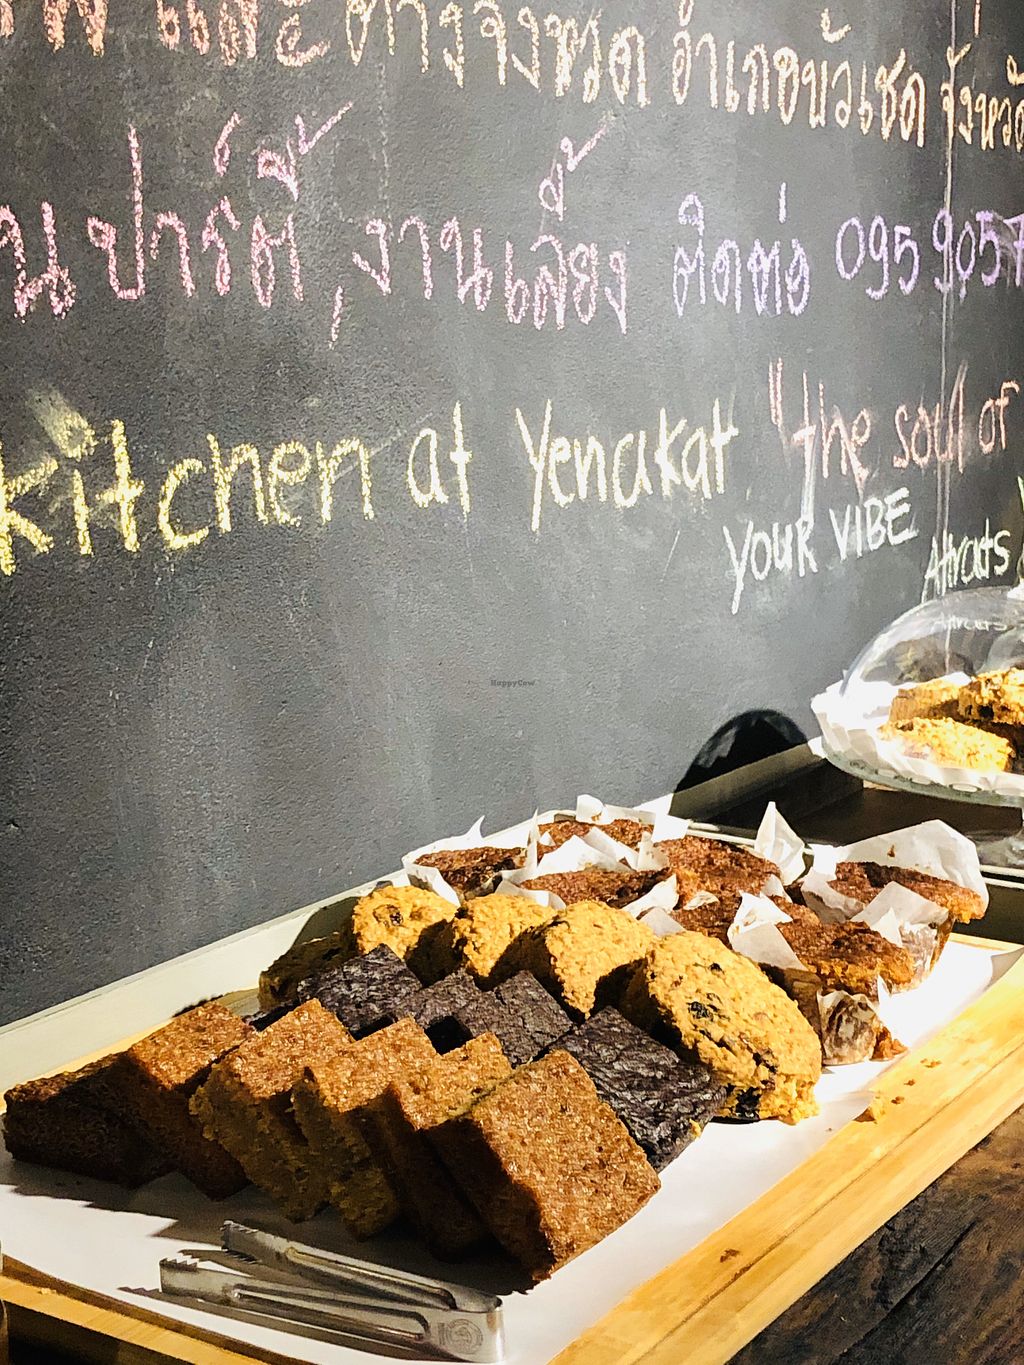 และ ต่างจังหวัด อำเภอบัวเชด จังหวัด
ปาร์ตี้, งานเลี้ยง ติดต่อ 095 9057
kitchen at Yenakat "the soul of
YOUR VIBE
Attracts
HappyCow